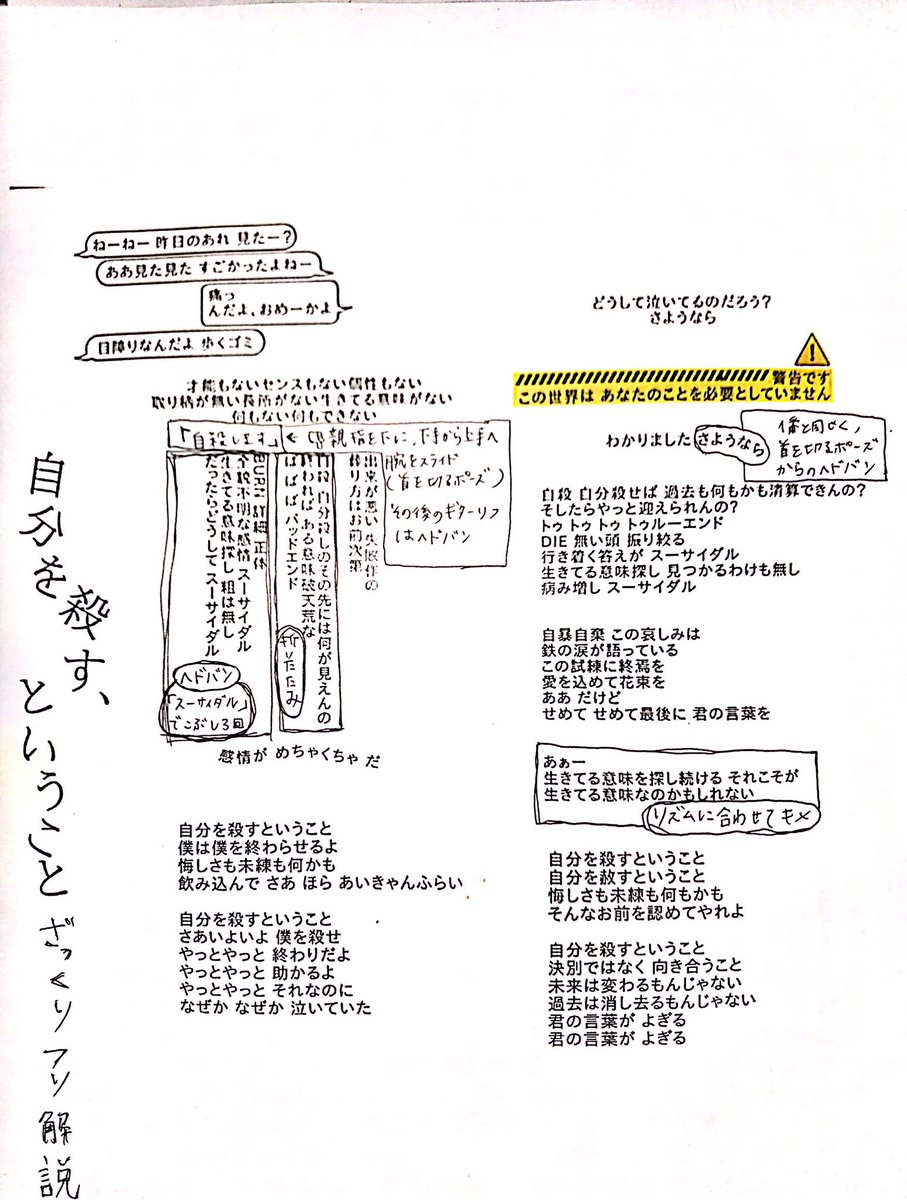 自分を殺す、
ということ ざっくりフリ解説
ねーねー 昨日のあれ 見たー？
ああ見た見た すごかったよねー
痛っ
んだよ、おめーかよ
目障りなんだよ 歩くゴミ
才能もないセンスもない個性もない
取り柄が無い長所がない生きてる意味がない
何もない何もできない
「自殺します」
← CB親指を下に、下手から上手へ
腕をスライド
(首を切るポーズ)
その後のギターリフ
はヘドバン
出来が悪い 失敗作の
終り方はお前次第
自殺 自分殺しのその先には何が見えんの
終われればある意味破天荒な
ば ば ば バッドエンド
折りたたみ
BURN 詳細 正体
全部不明な感情 スーサイダル
生きてる意味探し 粗は無し
だったらどうして スーサイダル
ヘドバン
「スーサイダル」
でこぶし3回
感情が めちゃくちゃ だ
自分を殺すということ
僕は僕を終わらせるよ
悔しさも未練も何かも
飲み込んで さあ ほら あいきゃんふらい
自分を殺すということ
さあいよいよ 僕を殺せ
やっとやっと 終わりだよ
やっとやっと 助かるよ
やっとやっと それなのに
なぜか なぜか 泣いていた
どうして泣いてるのだろう？
さようなら
警告です
この世界は あなたのことを必要としていません
わかりました さようなら
1番と同じく、
首を切るポーズ
からのヘドバン
自殺 自分殺せば 過去も何もかも清算できんの？
そしたらやっと迎えられんの？
トゥ トゥ トゥ トゥルーエンド
DIE 無い頭 振り絞る
行き着く答えが スーサイダル
生きてる意味探し 見つかるわけも無し
病み増し スーサイダル
自暴自棄 この哀しみは
鉄の涙が語っている
この試練に終焉を
愛を込めて花束を
ああ だけど
せめて せめて最後に 君の言葉を
あぁー
生きてる意味を探し続ける それこそが
生きてる意味なのかもしれない
リズムに合わせてキメ
自分を殺すということ
自分を赦すということ
悔しさも未練も何もかも
そんなお前を認めてやれよ
自分を殺すということ
決別ではなく 向き合うこと
未来は変わるもんじゃない
過去は消し去るもんじゃない
君の言葉が よぎる
君の言葉が よぎる